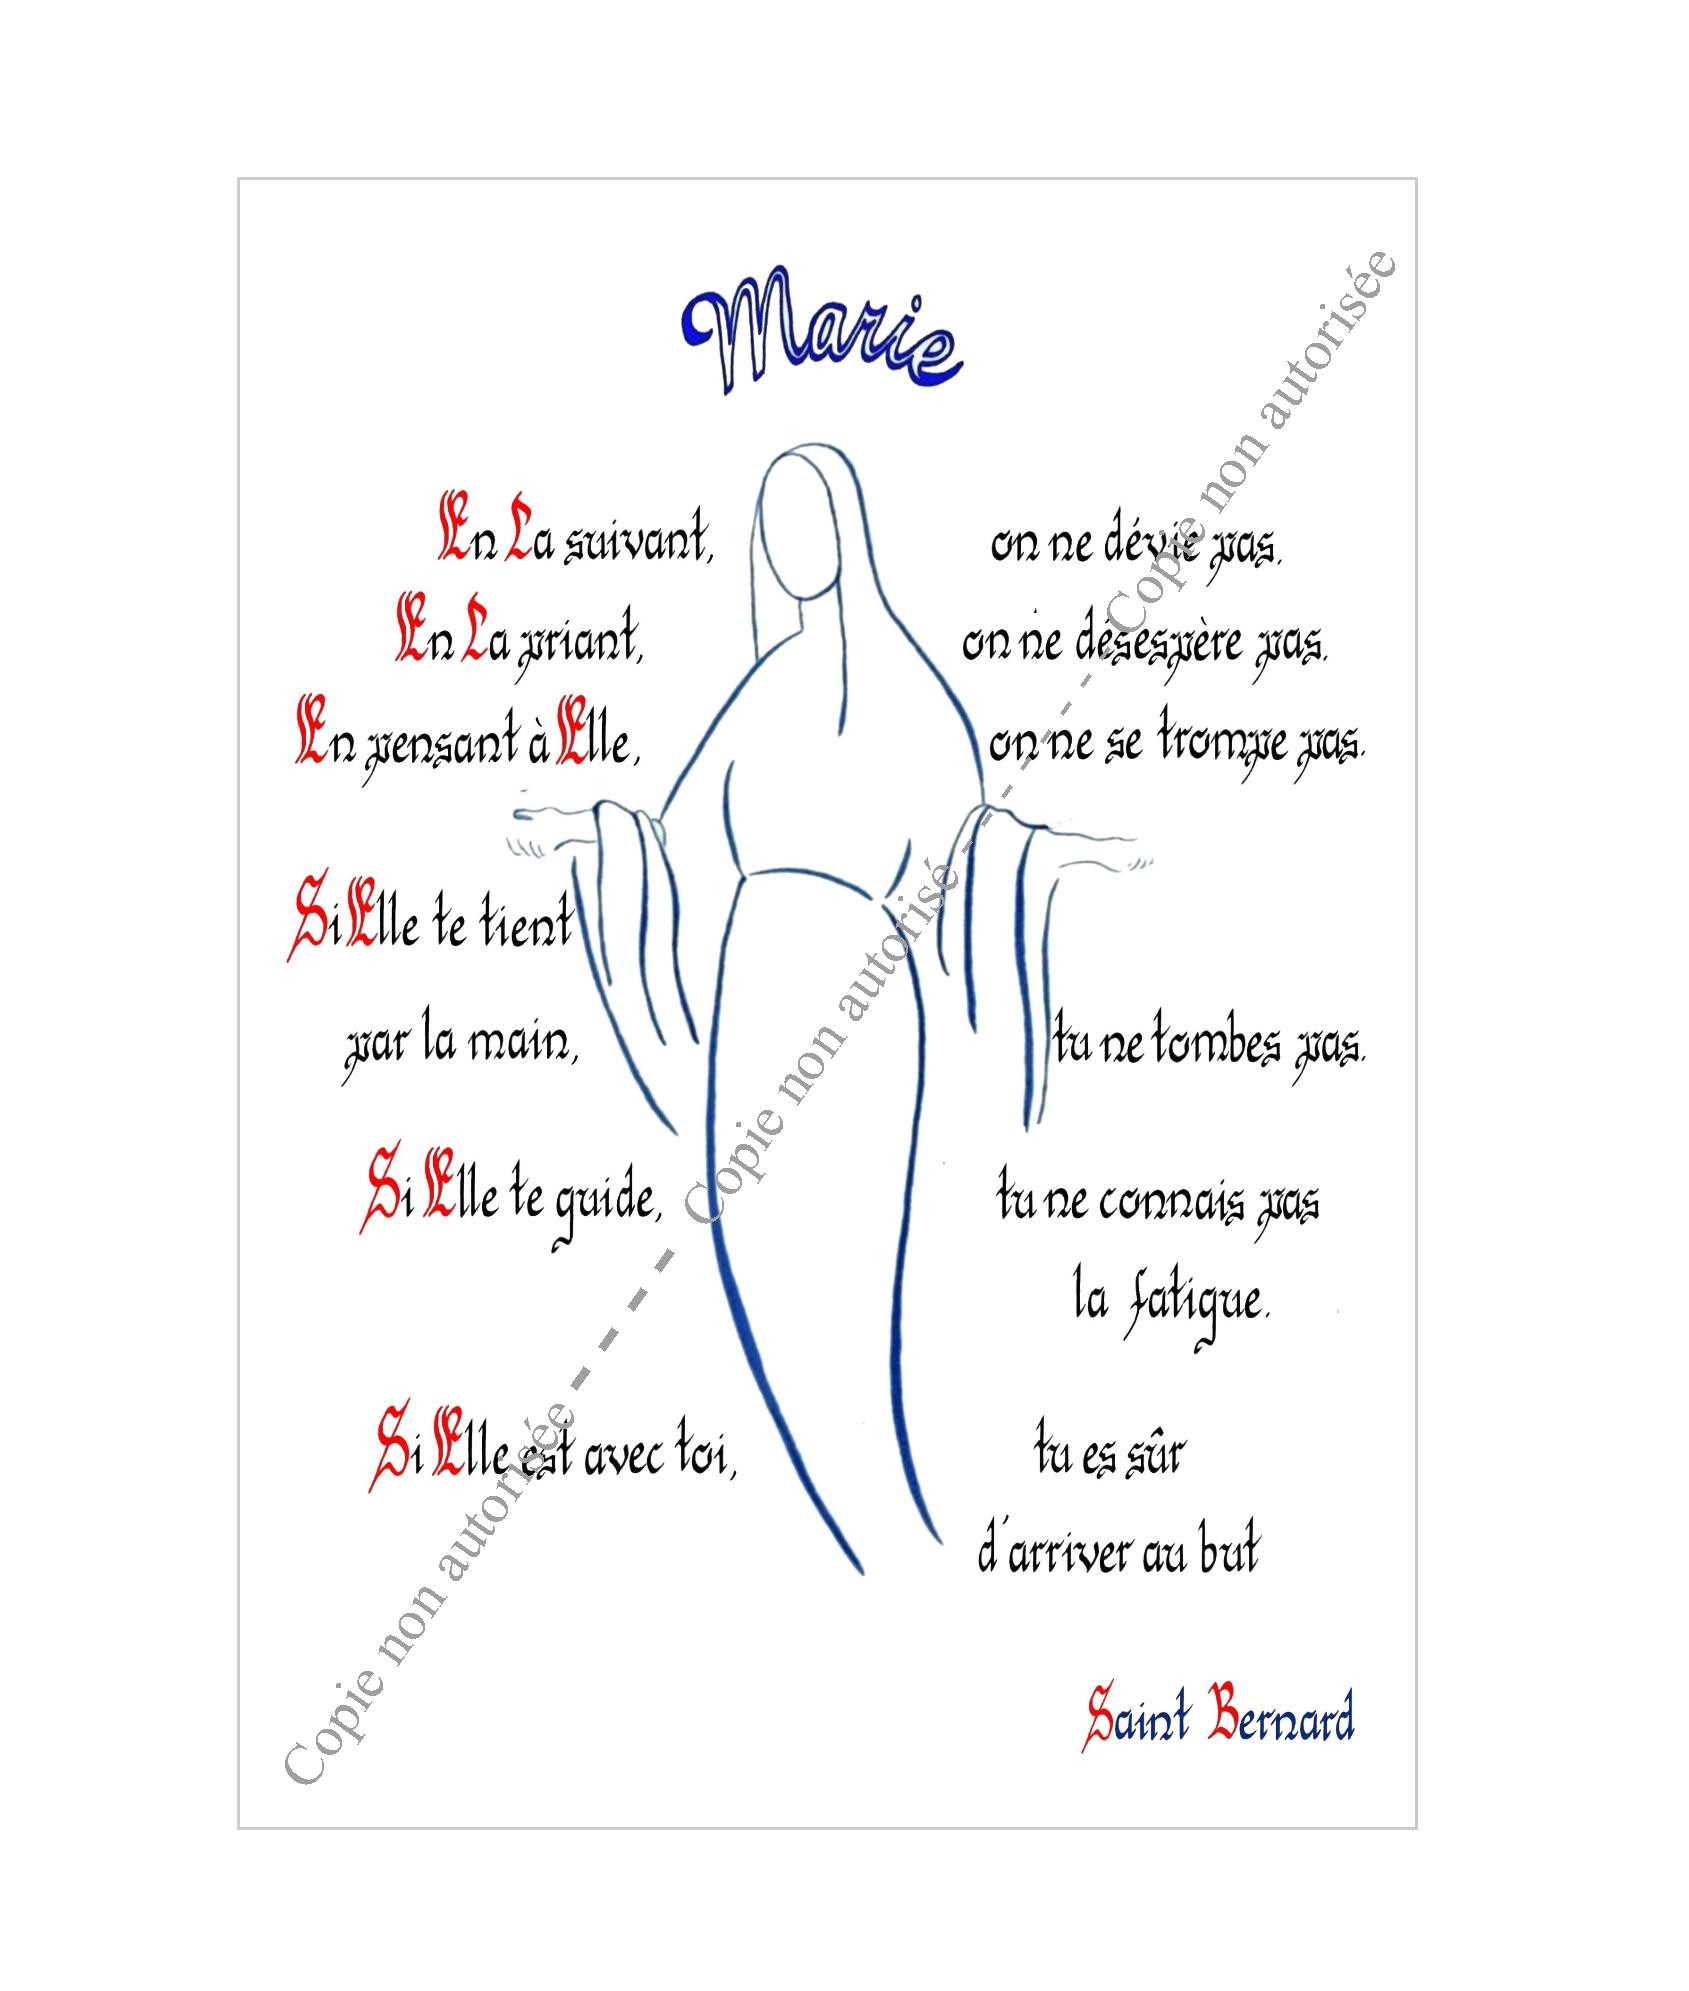 Marie
En La suivant, on ne dévie pas.
En La priant, on ne désespère pas.
En pensant à Elle, on ne se trompe pas.
Si Elle te tient
par la main, tu ne tombes pas.
Si Elle te guide, tu ne connais pas
la fatigue.
Si Elle est avec toi, tu es sûr
d'arriver au but
Saint Bernard
Copie non autorisée --- Copie non autorisé --- Copie non autorisée